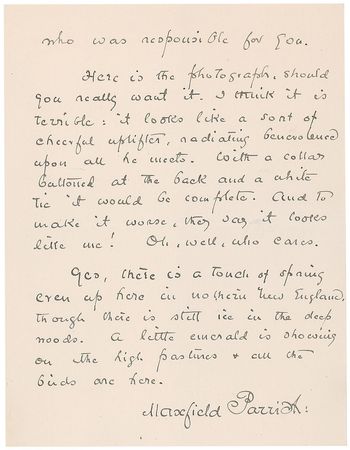 who was responsible for you.
Here is the photograph, should
you really want it. I think it is
terrible: it looks like a sort of
cheerful uplifter, radiating benevolence
upon all he meets. With a collar
buttoned at the back and a white
tie it would be complete. And to
make it worse, they say it looks
like me! Oh, well, who cares.
Yes, there is a touch of spring
even up here in northern New England,
though there is still ice in the deep
woods. A little emerald is showing
on the high pastures & all the
birds are here.
Maxfield Parrish: